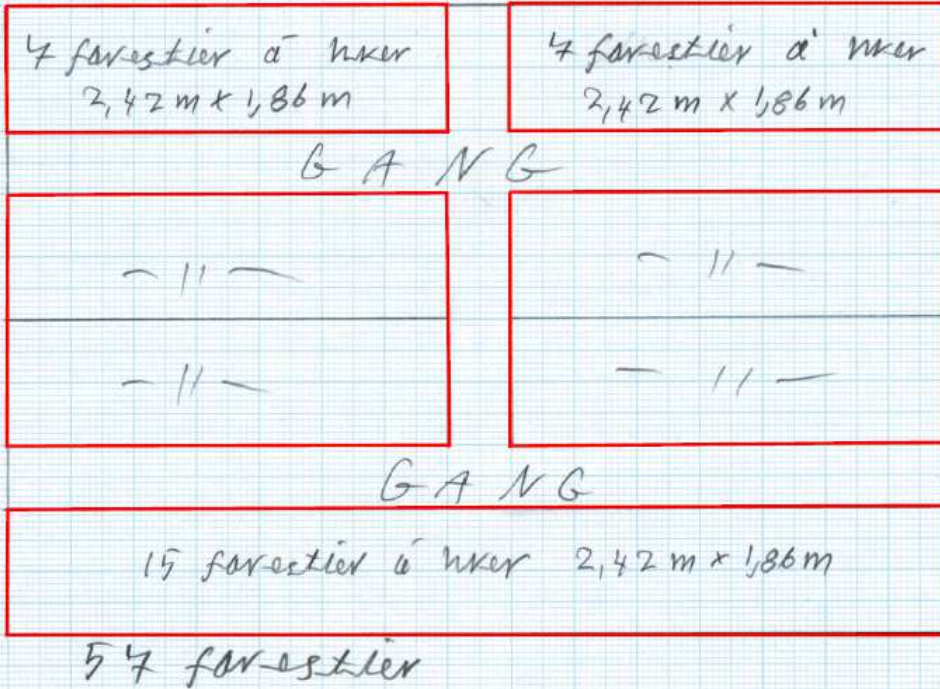 7 farestier á hver
2,42 m x 1,86 m
7 farestier á hver
2,42 m x 1,86 m
GANG
— 〃 —
— 〃 —
— 〃 —
— 〃 —
GANG
15 farestier á hver 2,42 m x 1,86 m
57 farestier